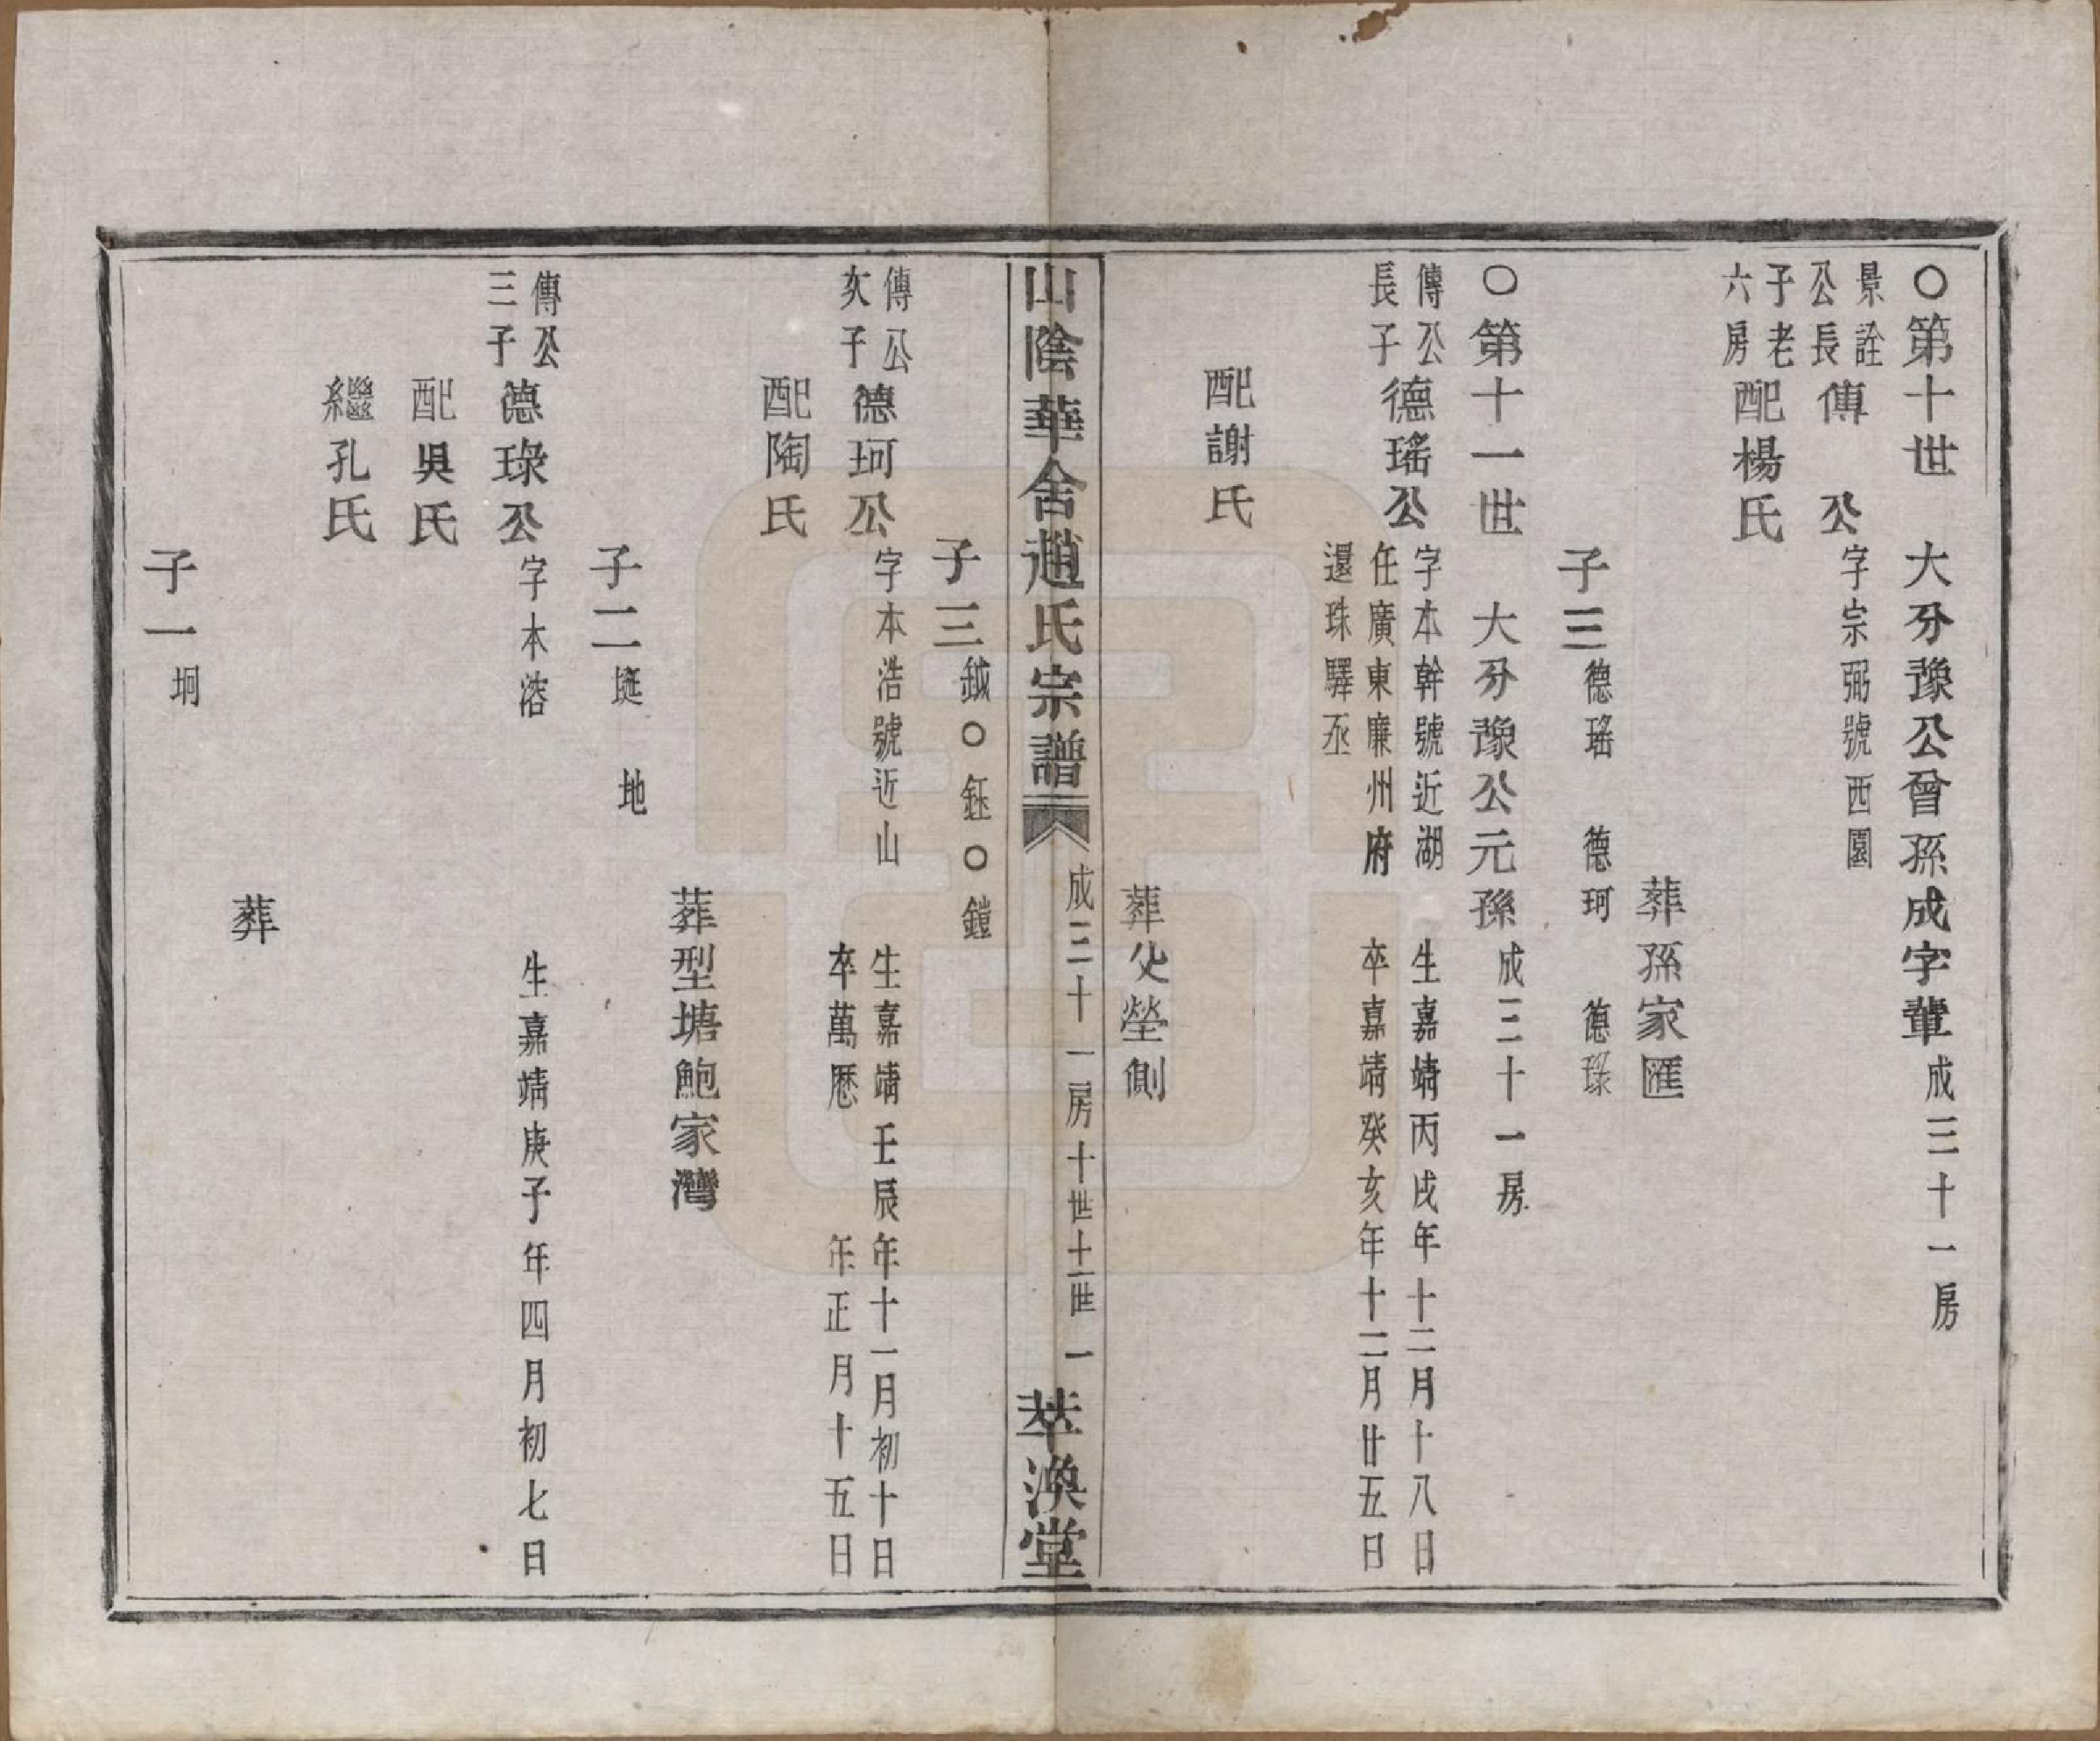 〇第十世　大分豫公曾孫成字輩成三十一房
景詮公長子老六房
傳　公字宗弼號西園
配楊氏
葬孫家匯
子三德瑤　德珂　德琭
〇第十一世　大分豫公元孫成三十一房
傳公長子
德瑤公字本幹號近湖　生嘉靖丙戌年十二月十八日
任廣東廉州府　卒嘉靖癸亥年十二月廿五日
還珠驛丞
配謝氏
葬父塋側
山陰華舍趙氏宗譜　成三十一房十世十一世　一　萃渙堂
子三鉞〇鈺〇鎧
傳公次子
德珂公字本浩號近山　生嘉靖壬辰年十一月初十日
卒萬歷　年正月十五日
配陶氏
葬型塘鮑家灣
子二埏　地
傳公三子
德琭公字本溶　生嘉靖庚子年四月初七日
配吳氏
繼孔氏
葬
子一坰